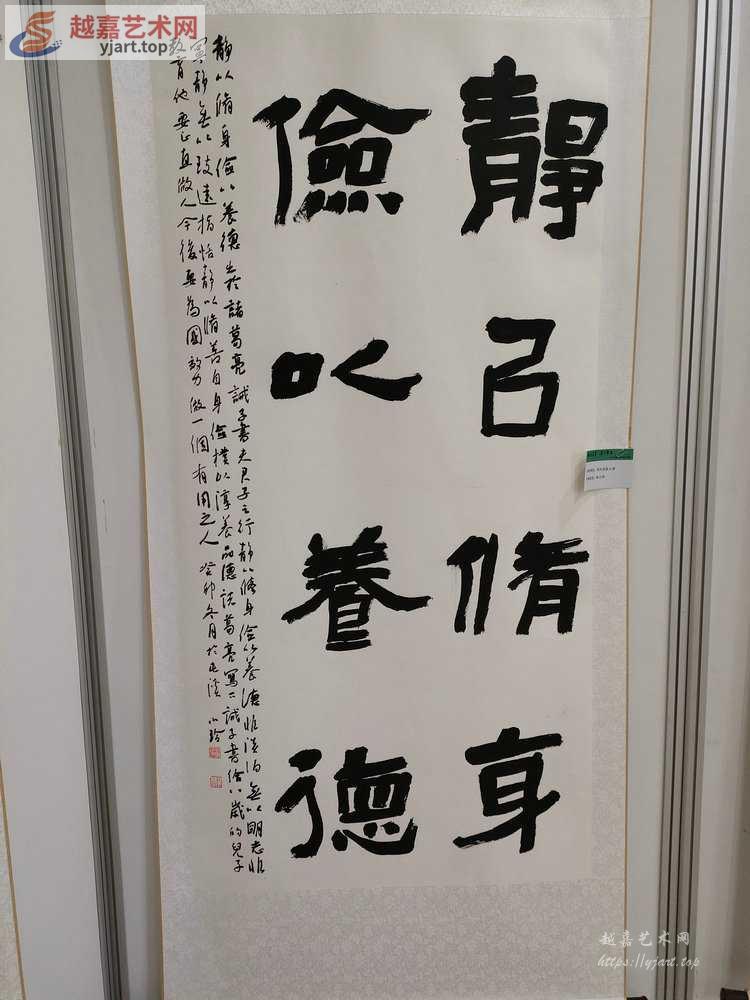 越嘉艺术网
yjart.top
靜㠯脩身
儉以養德
靜以脩身儉以養德出於諸葛亮誡子書夫君子之行靜以脩身儉以養德非淡泊無以明志非
寧靜無以致遠指恬靜以脩善自身儉樸以淳養品德説葛亮寫一誡子書給八歲的兒子
教育他要正直做人今後要為國效力做一個有用之人癸卯冬月於屯溪小玲
越嘉艺术网
https://yjart.top